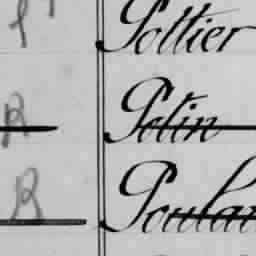 Pottier
R Potin
R Poula